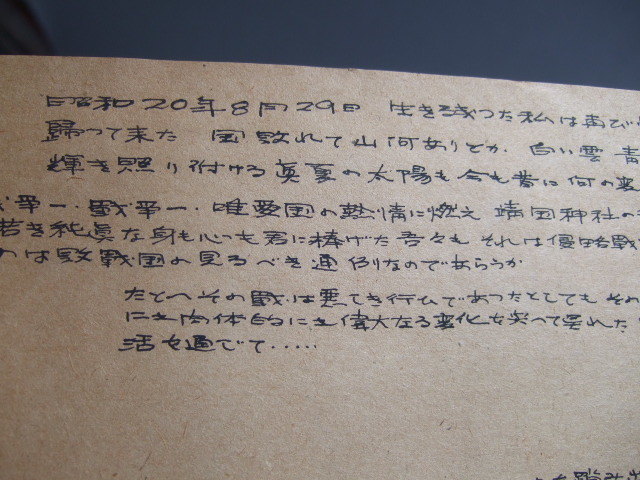 昭和20年8月29日 生き残つた私は再び
歸つて来た 国敗れて山河ありとか 白い雲 青
輝き照り付ける真夏の太陽も今も昔に何の変
争一・戦争一・唯愛国の熱情に燃え 靖国神社の
若き純真な身も心も君に捧げた吾々も それは侵略戦
は敗戦国の見るべき通例なのであらうか
たとへその戦は悪てき行ひであつたとしてもその
にも肉体的にも偉大なる変化を与つて呉れた
活を通じて......